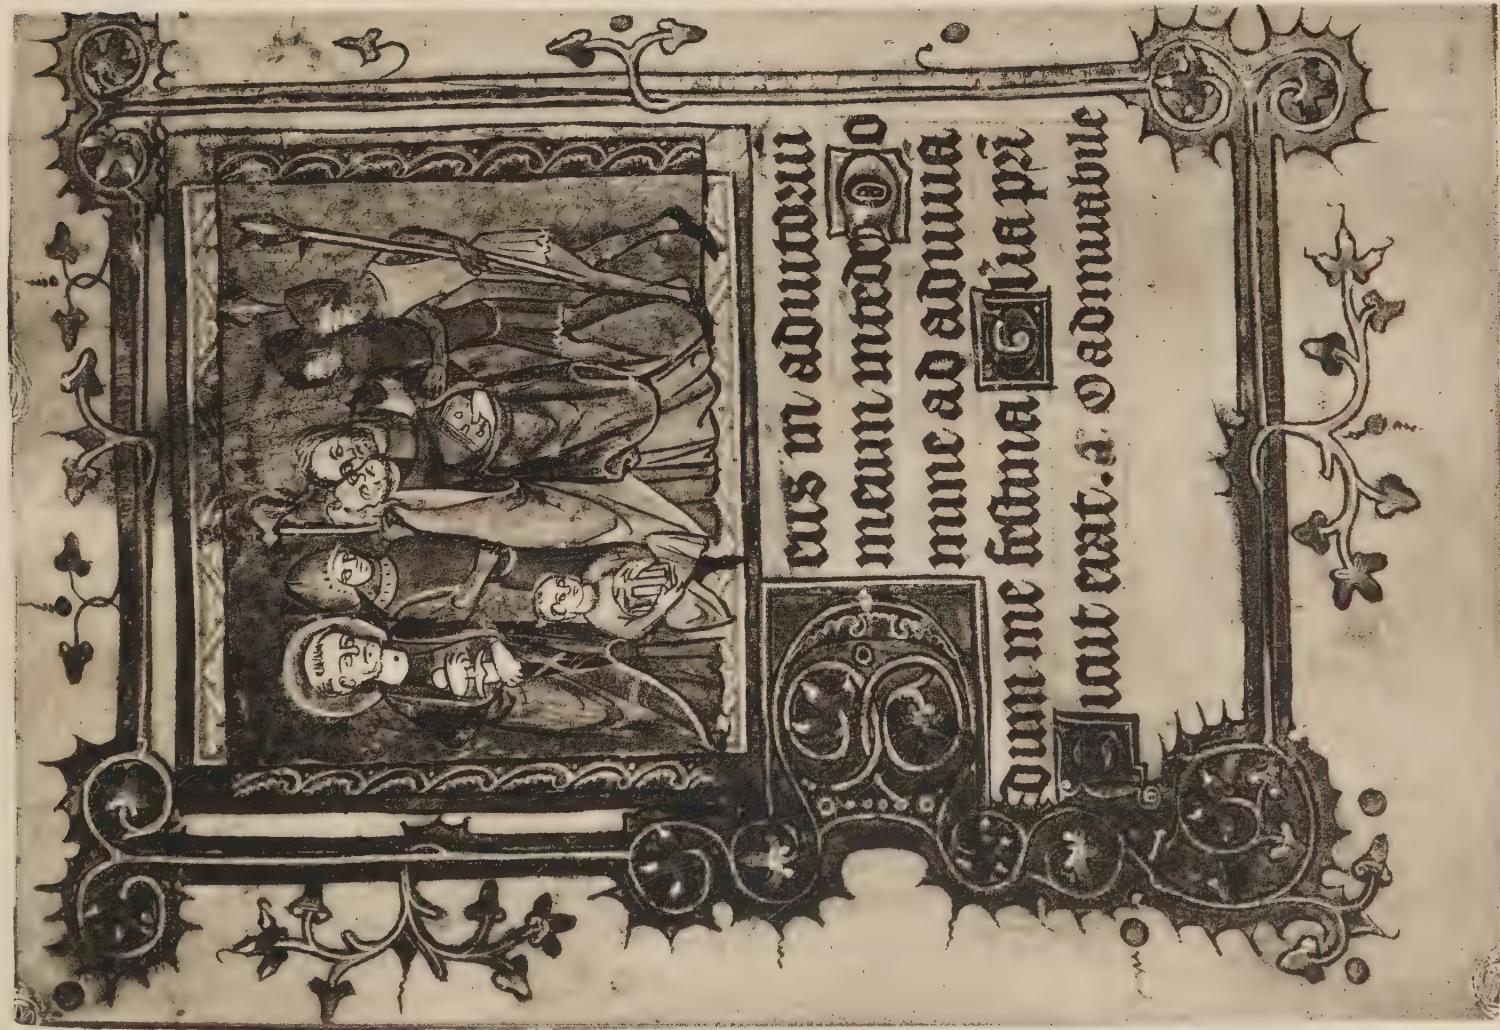 Deus in adiutoriu
meum intende Do
mine ad adiuua
dum me festina Glia pri
Sicut erat. a. O admirabile